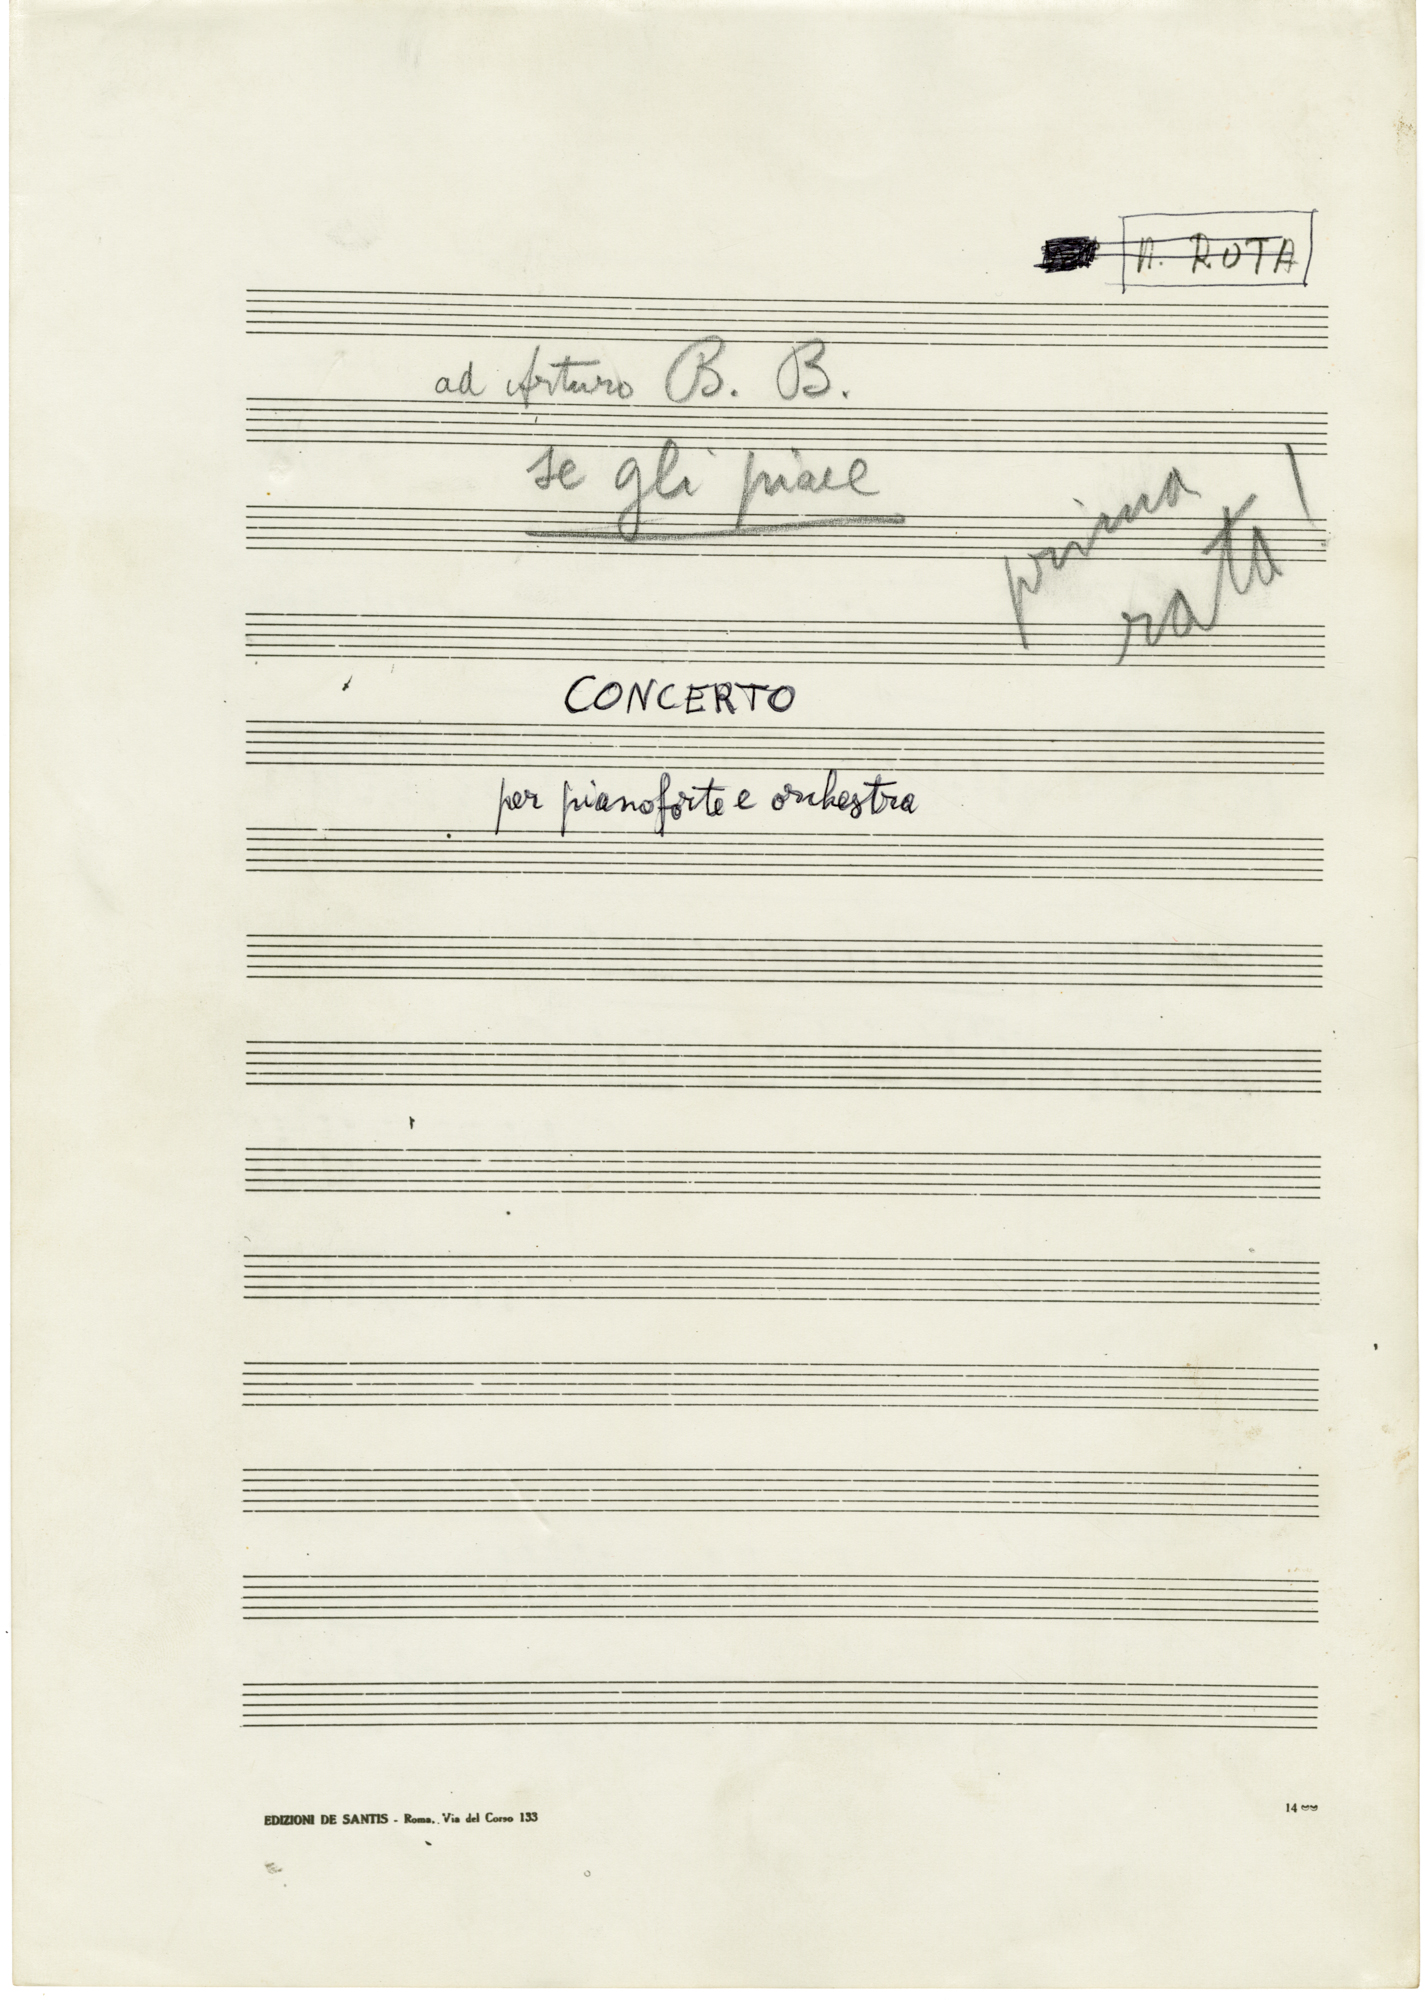 N. ROTA
ad Arturo B. B.
se gli piace
prima
rata!
CONCERTO
per pianoforte e orchestra
EDIZIONI DE SANTIS - Roma, Via del Corso 133
14